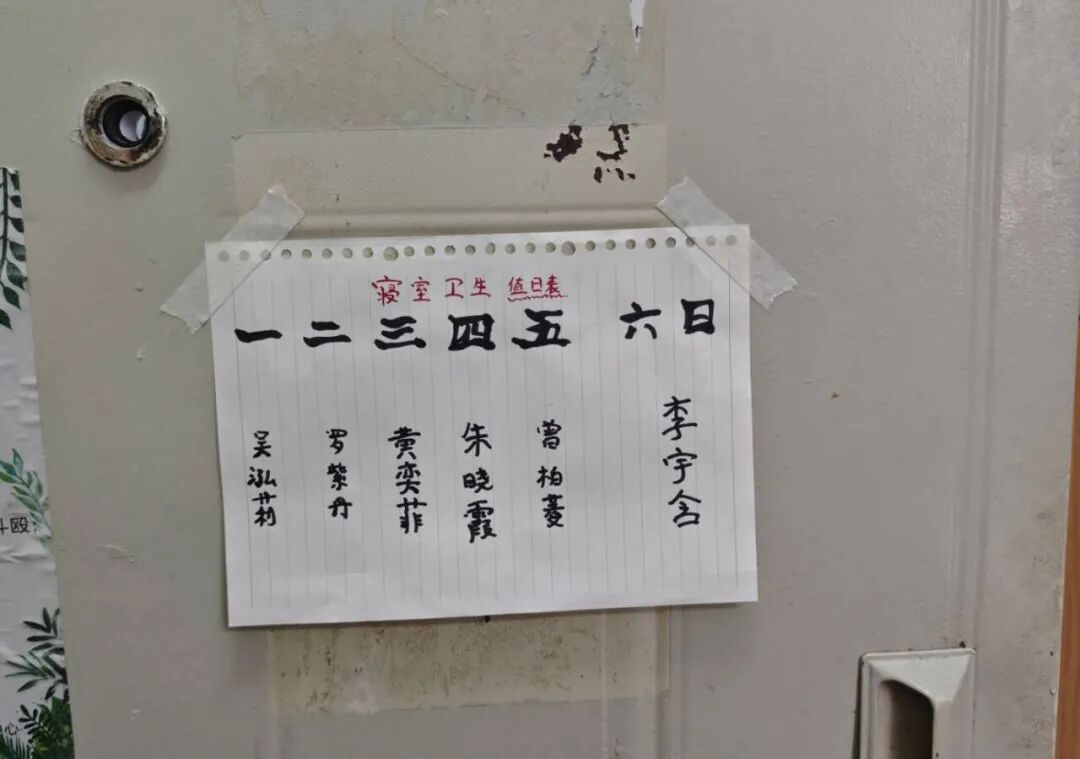 寝室卫生值日表
一 二 三 四 五 六 日
吴泓莉
罗紫丹
黄奕菲
朱晓霞
曾柏菱
李宇含
斗殴
中心